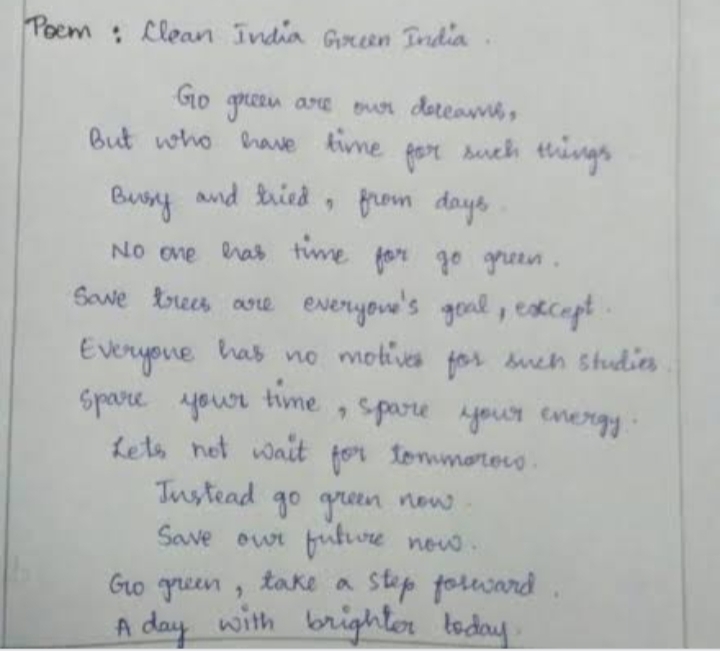 Poem : Clean India Green India .
Go green are our dreams,
But who have time for such things
Busy and tried , from days .
No one has time for go green .
Save trees are everyone's goal, except .
Everyone has no motives for such studies .
Spare your time , spare your energy .
Lets not wait for tommorow .
Instead go green now .
Save our future now .
Go green , take a step forward .
A day with brighter today .